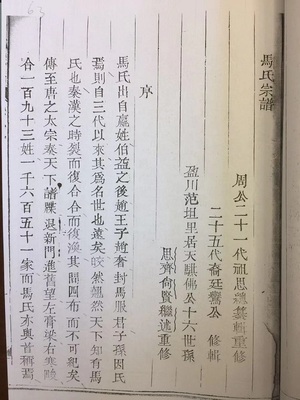 馬氏宗譜
周公二十一代祖思聰纂輯重修
二十五代裔廷響公 修輯
盈川范坦里居天驥佛公十六世孫
思齊尚賢繼述重修
序
馬氏出自嬴姓伯益之後趙王子趙奢封馬服君子孫因氏
焉則自三代以來其為名世也遠矣咬然翹然天下知有馬
氏也奏漢之時裂而復合合而復渙其間四布而不可紀矣
傳至唐之太宗奏天下譜牒退新門進舊望左膏粱右寒酸
合一百九十三姓一千六百五十一家而馬氏亦與首稱焉